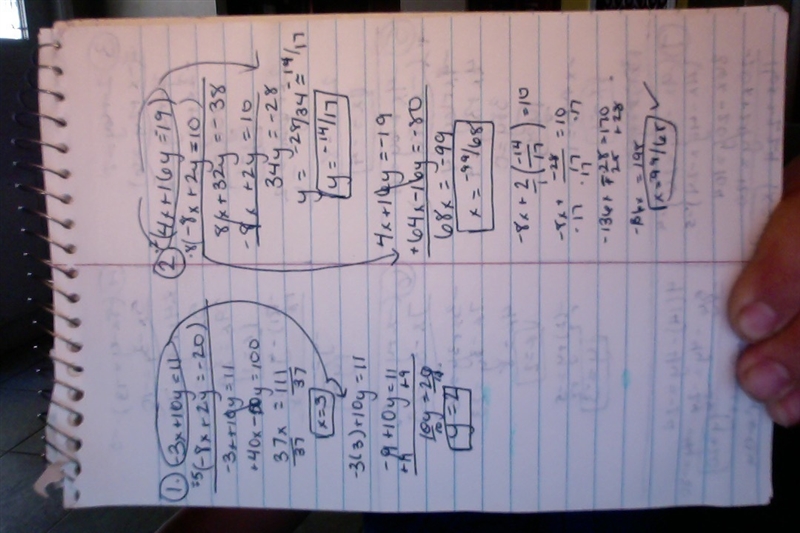 1. -3x+10y=11
-5(-8x+2y=-20)
-3x+10y=11
+40x-10y=100
37x=111
37 37
x=3
-3(3)+10y=11
-9+10y=11
+9 +9
10y=20
10 10
y=2
2. 2(4x+16y=19)
8(-8x+2y=10)
8x+32y=-38
-8x+2y=10
34y=-28
y=-28/34=-14/17
y=-14/17
4x+16y=-19
+64x-16y=-80
68x=-99
x=-99/68
-8x+2(-14/17)=10
-8x+-28/17=10
·17 ·17 ·17
-136x-28=170
28 +28
x=99/68 ✓